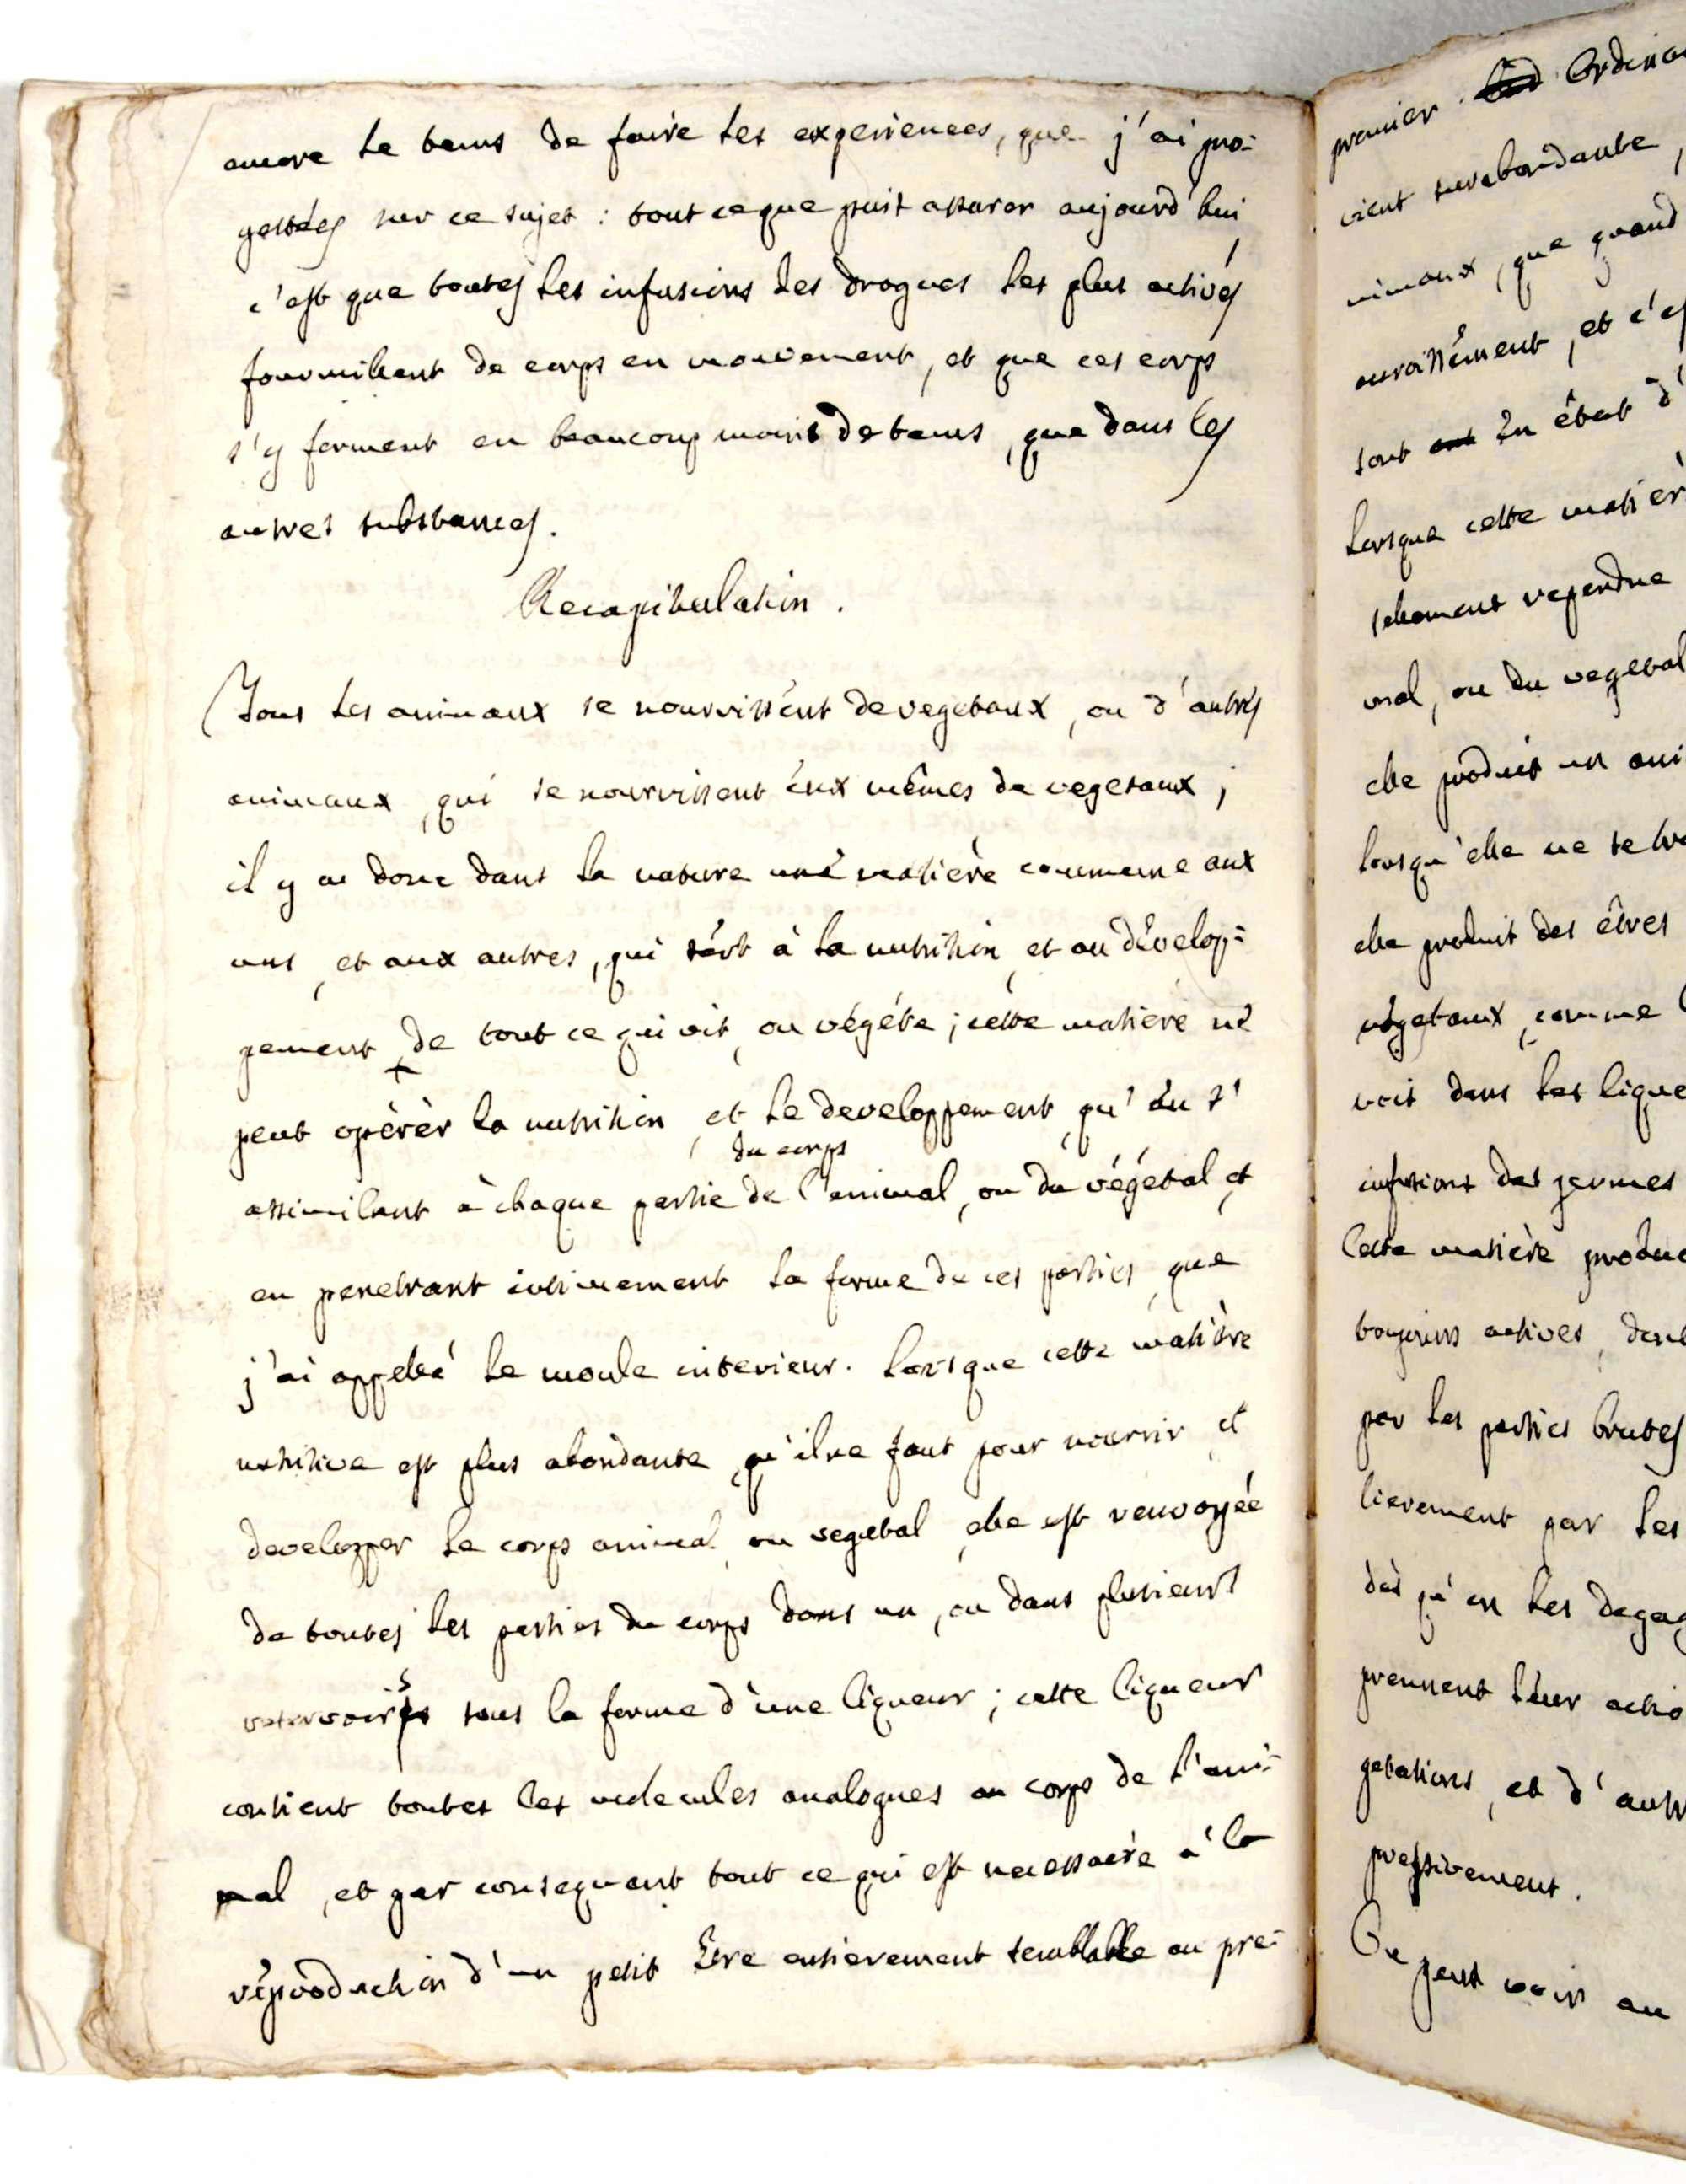 encore le tems de faire les experiences, que j'ai pro-
gettées sur ce sujet : tout ce que puis assurer aujourd'hui
c'est que toutes les infusions des drogues les plus actives
fourmillent de corps en mouvement, et que ces corps
s'y forment en beaucoup moins de tems, que dans les
autres substances.
Recapitulation.
Tous les animaux se nourrissent de vegetaux, ou d'autres
animaux, qui se nourrissent eux mêmes de vegetaux ;
il y a donc dans la nature une matière commune aux
uns, et aux autres, qui sért à la nutrition, et au dévelop-
pement de tout ce qui vit, ou végéte ; cette matiere ne
peut opérèr la nutrition, et le developpement, qu'en s'
du corps
assimilant à chaque partie de l'animal, ou du végétal, et
en penetrant intimement la forme de ces parties, que
j'ai appellé le moule interieur. Lorsque cette matière
nutritive est plus abondante, qu'il ne faut pour nourrir et
developper le corps animal, ou vegetal, elle est renvoyée
de toutes les parties du corps dans un, ou dans plusieurs
reservoirs sous la forme d'une liqueur ; cette liqueur
contient toutes les molecules analogues au corps de l'ani-
mal, et par consequent tout ce qui est necessaire à la
réproduction d'un petit Etre entierement semblable au pre-
premier Ordinai
vient surabondante,
nimaux, que quand
accroissement, et c'es
sont En état d'
Lorsque cette matièr
sellement rependue
mal, ou du vegetal
elle produit un ani
lorsqu'elle ne se tro
elle produit des êtres
végetaux, comme
voit dans les lique
infusions des germes
Cette matière produc
toujours actives, dont
par les parties brutes
lierement par les
dès qu'on les degag
prennent leur actio
getations, et d'autr
gressivement.
On peut voir au